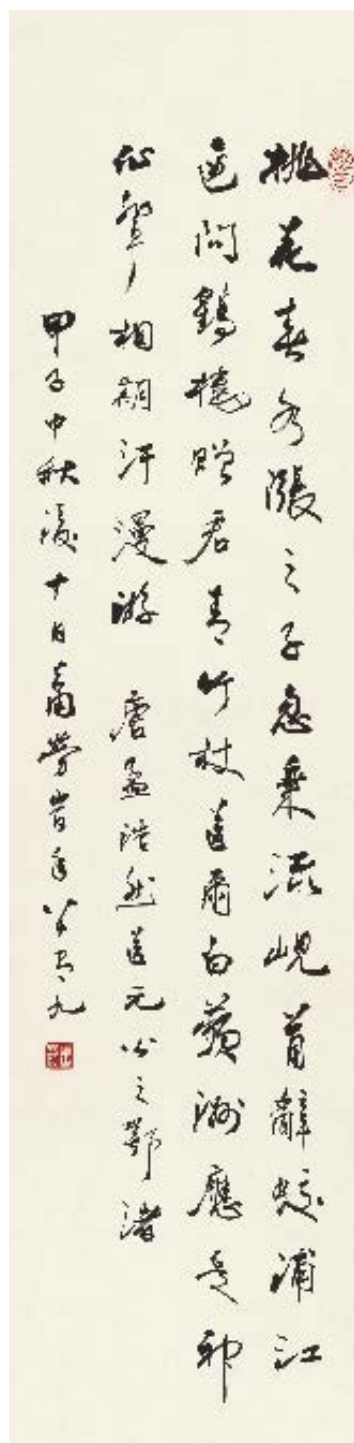 桃花春水漲之子忽乘流峴首辭蛟浦江
邊問鶴樓贈君青竹杖送爾白蘋洲應是神
仙輩相期汗漫游 唐孟浩然送元公之鄂渚
甲子中秋後十日蕭勞時年八十有九